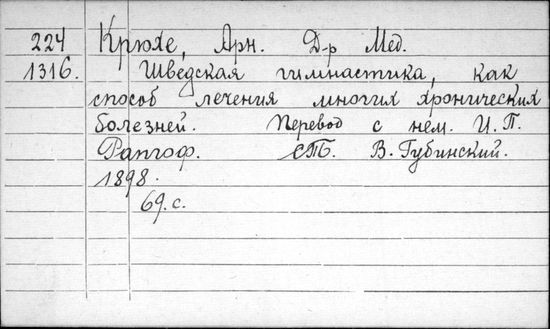 224 Крюхе, Арн. Д-р Мед.
1316. Шведская гимнастика, как
способ лечения многих хронических
болезней. Перевод с нем. И. П.
Рапгоф. СПБ. В. Губинский.
1898.
69. с.